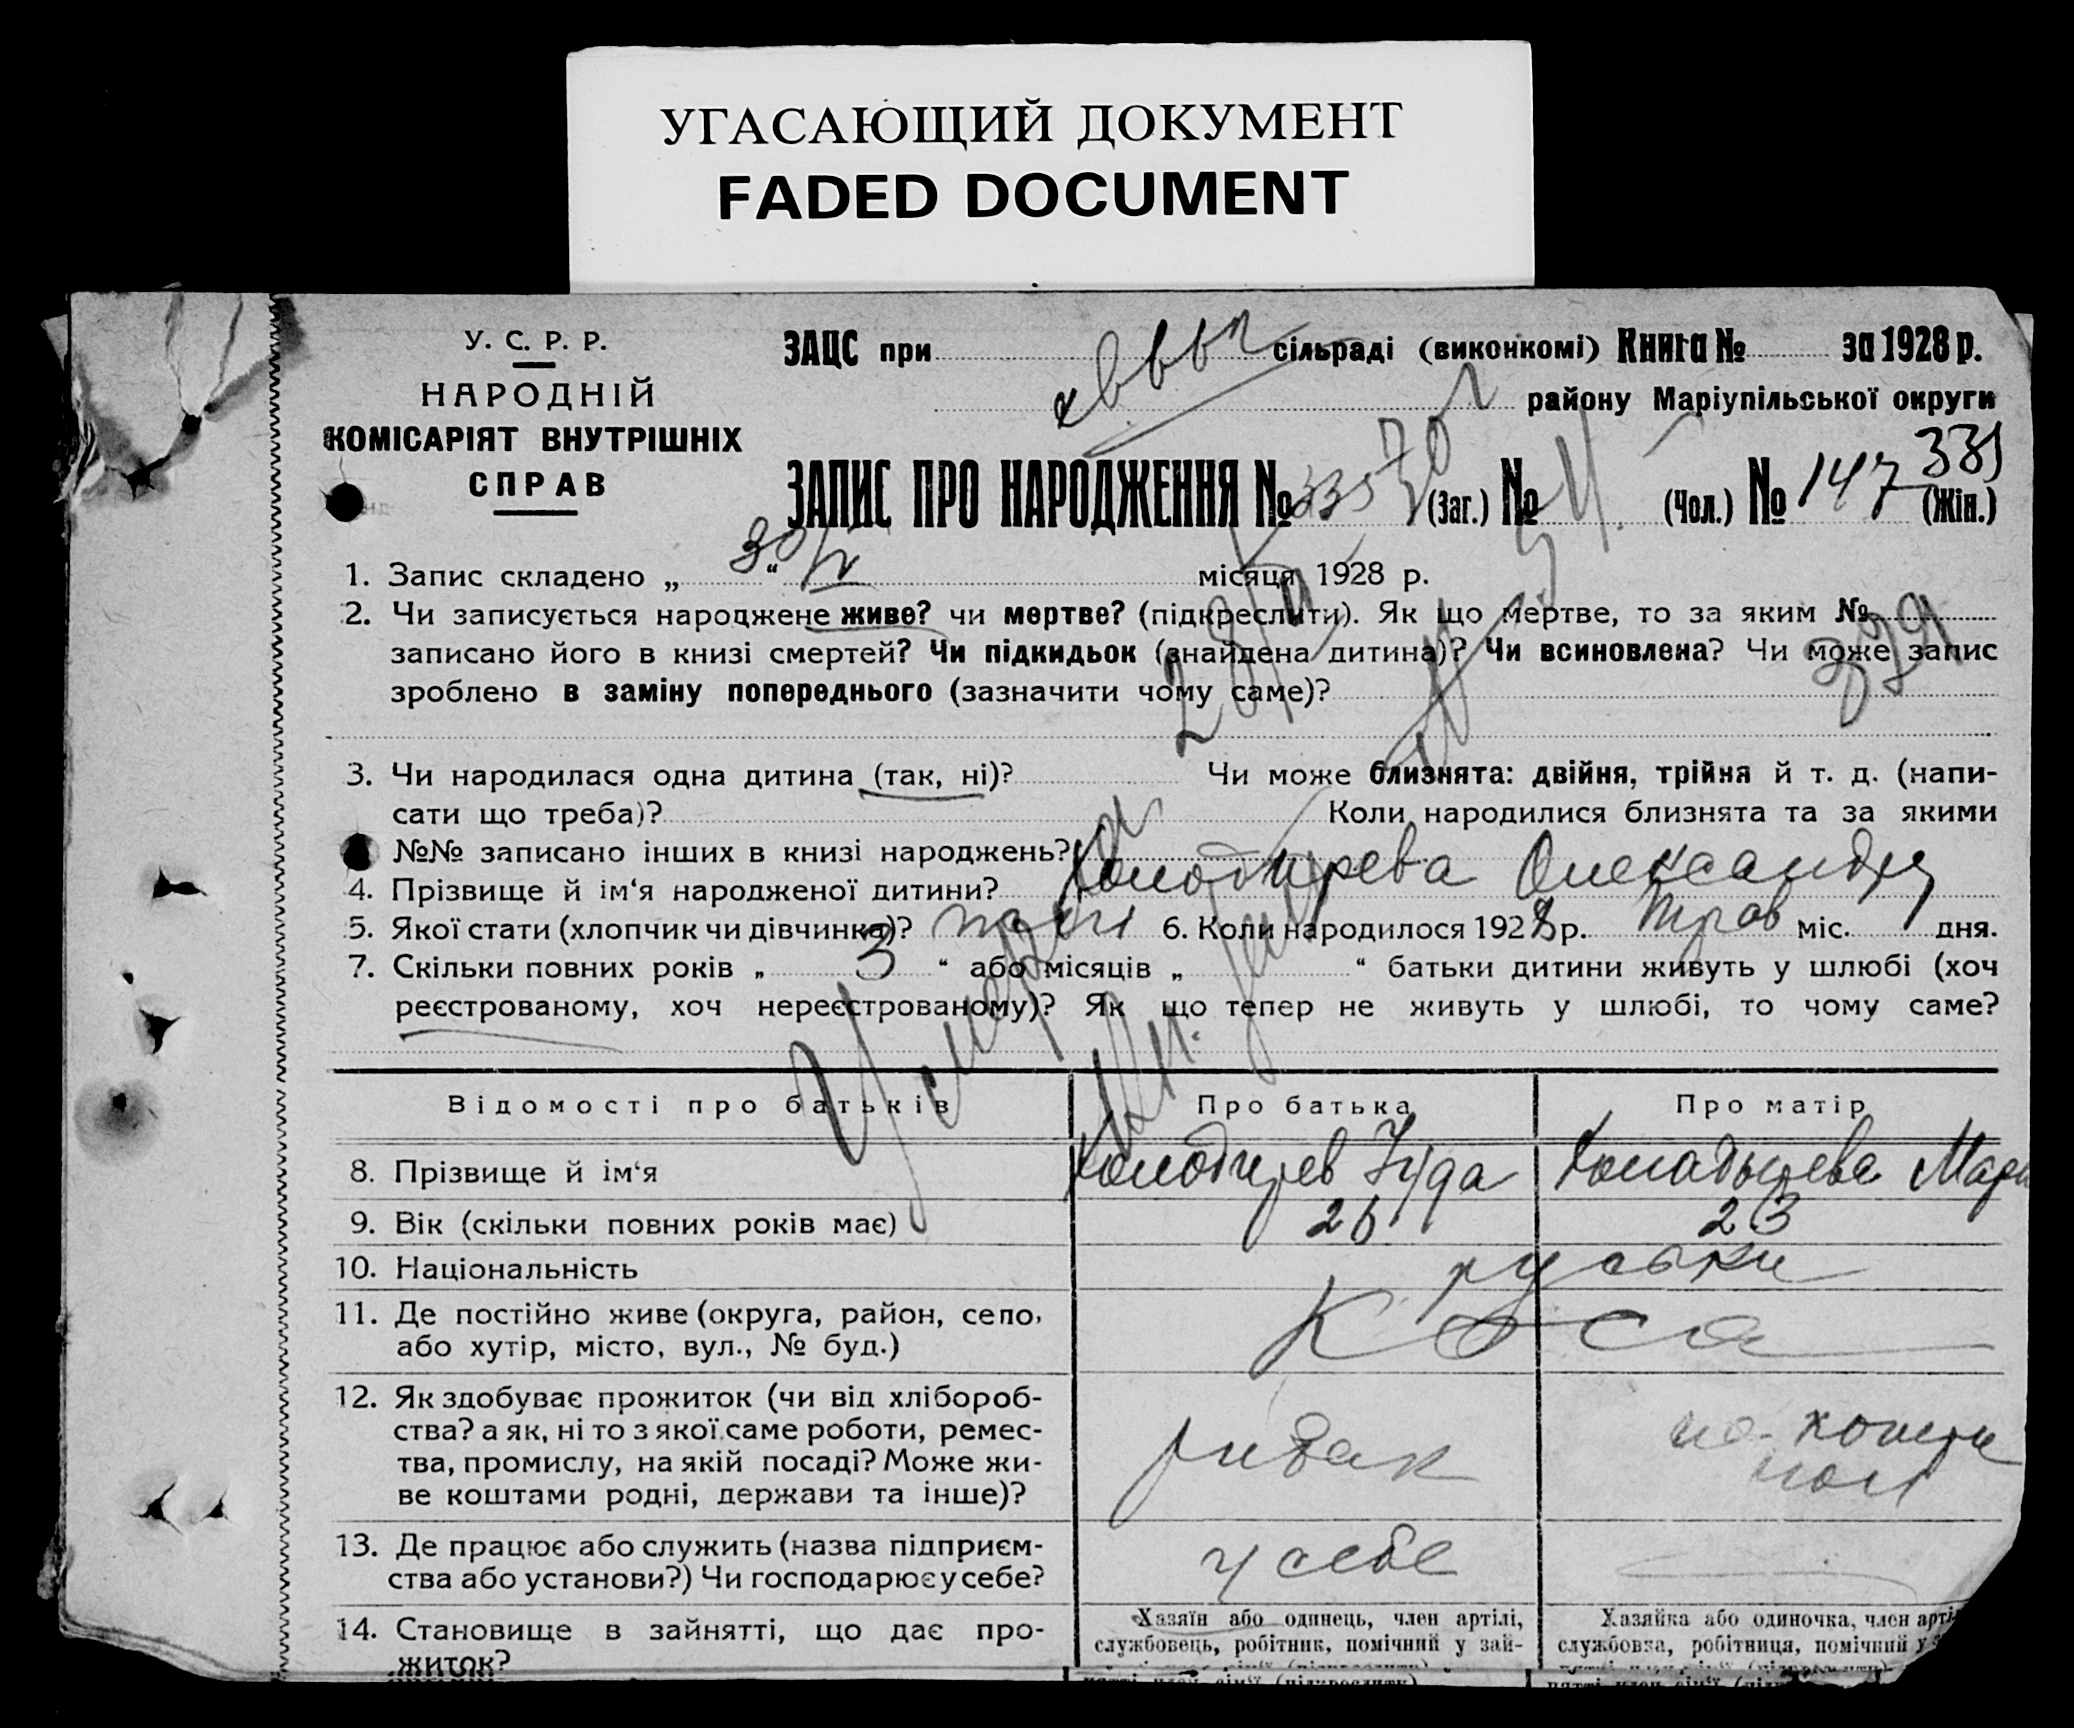 УГАСАЮЩИЙ ДОКУМЕНТ
FADED DOCUMENT
У. С. Р. Р.
НАРОДНІЙ
КОМІСАРІЯТ ВНУТРІШНІХ
СПРАВ
ЗАЦС при сільраді (виконкомі) Книга № за 1928 р.
району Маріупільської округи
339
ЗАПИС ПРО НАРОДЖЕННЯ № 335 (Заг.) № (Чол.) № 147 (Жін.)
1. Запис складено „ 30 “ місяця 1928 р.
2. Чи записується народжене живе? чи мертве? (підкреслити). Як що мертве, то за яким №
записано його в книзі смертей? Чи підкидьок (знайдена дитина)? Чи всиновлена? Чи може запис
зроблено в заміну попереднього (зазначити чому саме)?
3. Чи народилася одна дитина (так, ні)? Чи може близнята: двійня, трійня й т. д. (напи-
сати що треба)? Коли народилися близнята та за якими
№№ записано інших в книзі народжень?
4. Прізвище й ім‘я народженої дитини? Олександра
5. Якої стати (хлопчик чи дівчинка)? 6. Коли народилося 1928 р. трав міс. дня.
7. Скільки повних років „ 3 “ або місяців „ “ батьки дитини живуть у шлюбі (хоч
реєстрованому, хоч нереєстрованому)? Як що тепер не живуть у шлюбі, то чому саме?
Умерла
Відомості про батьків Про батька Про матір
8. Прізвище й ім‘я
9. Вік (скільки повних років має) 26 23
10. Національність руські
11. Де постійно живе (округа, район, село,
або хутір, місто, вул., № буд.)
Коса
12. Як здобуває прожиток (чи від хлібороб-
ства? а як, ні то з якої саме роботи, ремес-
тва, промислу, на якій посаді? Може жи-
ве коштами родні, держави та інше)?
рибак
13. Де працює або служить (назва підприєм-
ства або установи?) Чи господарює у себе?
у себе
14. Становище в зайнятті, що дає про-
житок?
Хазяїн або одинець, член артілі,
службовець, робітник, помічний у зай-
Хазяйка або одиночка, член арті
службовка, робітниця, помічний у